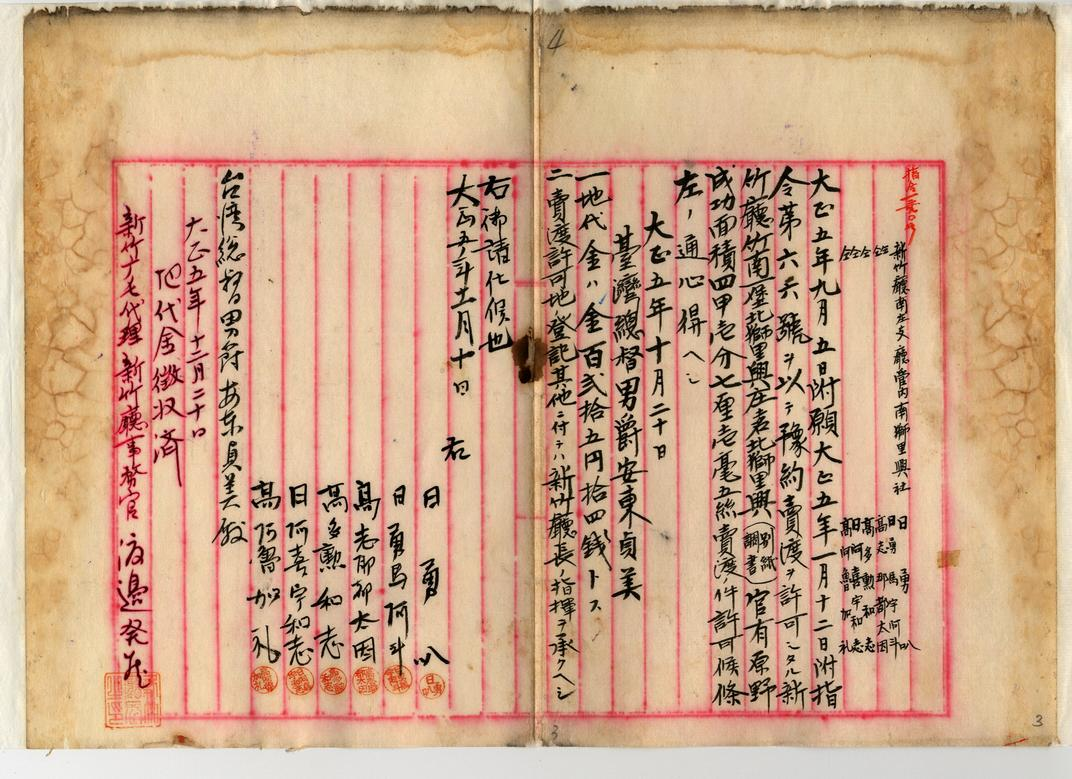 4
新竹廳南庄支廳管内南獅里興社
日勇叭
仝
日勇馬宇阿斗
仝
高志那都太因
仝
高多勲和志
仝
日阿喜宇和志
高阿魯加礼
大正五年九月五日附願大正五年一月十二日附指
令第六六號ヲ以テ豫約賣渡ヲ許可シタル新
竹廳竹南一堡北獅里興庄土名北獅里興(別紙調書)官有原野
成功面積四甲壱分七厘壱毫五絲賣渡ノ件許可候條
左ノ通心得ヘシ
大正五年十月二十日
臺灣總督男爵安東貞美
一地代金ハ金百弐拾五円拾四銭トス
二賣渡許可地ノ登記其他ニ付テハ新竹廳長ノ指揮ヲ承クヘシ
右御請仕候也
大正五年十一月十日
右
日勇叭
日勇馬阿斗
高志那都太因
高多勲和志
日阿喜宇和志
高阿魯加礼
台湾総督男爵安東貞美殿
大正五年十二月二十日
地代金徴収済
新竹廳長代理新竹廳事務官渡邊発蔵
3
3